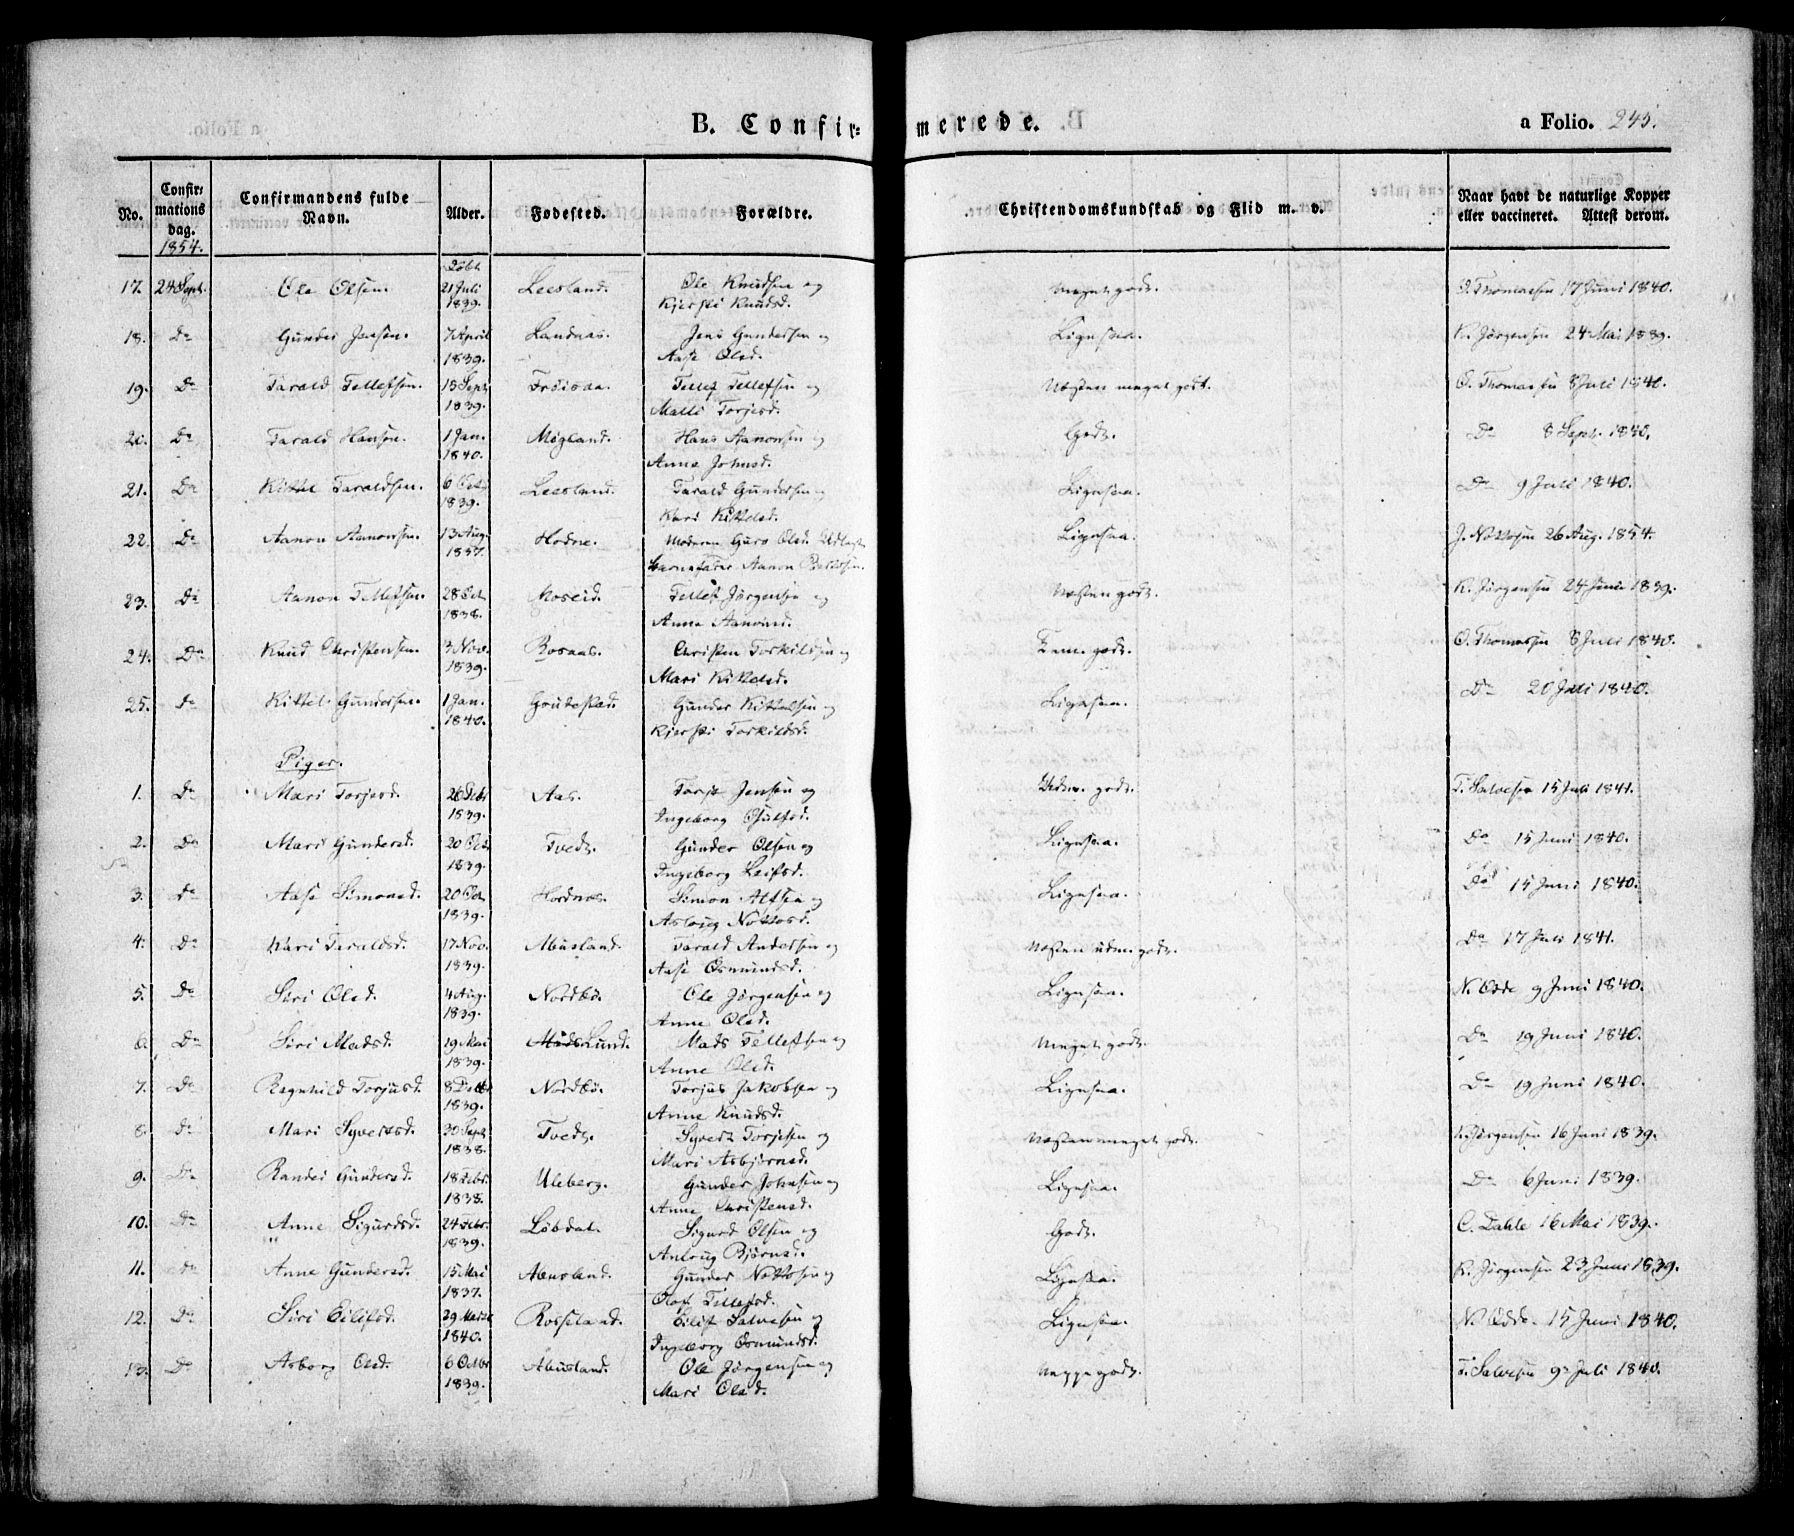 B. Confir-merede. a Folio. 245.
No. Confirmations dag. 1854. Confirmandens fulde Navn. Alder. Fødested. Forældre. Christendomskundskab og Flid m. v. Naar havt de naturlige Kopper eller vaccineret. Attest derom.
17. 24 Sept. Ole Olsen. døbt 21 Juli 1839. Leesland. Ole Knudsen og Kjersti Knudsd. Meget godt. O. Thomassen 17 Juni 1840.
18. Do Gunder Jensen. 7 April 1839. Landaas. Jens Gundersen og Aase Olsd. Ligesaa. K. Jørgensen 24 Mai 1839.
19. Do Tarald Tellefsen. 15 Sept. 1839. Frøisaa. Tellef Tellefsen og Malli Torjesd. Næsten meget godt. O. Thomassen 8 Juli 1840.
20. Do Tarald Hansen. 1 Jan. 1840. Møgland. Hans Aanonsen og Anne Johnsd. Godt. Do 8 Sept. 1840.
21. Do Kittel Taraldsen. 6 Oct. 1839. Leesland. Tarald Gundersen og Kari Kittelsd. Ligesaa. Do 9 Juli 1840.
22. Do Aanon Aanonsen. 13 Aug. 1837. Hodne. Moderen Guro Olsd. Udlagt Barnefader Aanon Ligesaa. J. Nottosen 26 Aug. 1854.
23. Do Aanon Tellefsen. 28 Oct. 1838. Moseid. Tellef Jørgensen og Anna Aanonsd. Næsten godt. K. Jørgensen 24 Juni 1839.
24. Do Knud Christensen. 3 Nov. 1839. Rosaas. Christen Torkildsen og Mari Kittelsd. Temm. godt. O. Thomassen 8 Juli 1840.
25. Do Kittel Gundersen. 1 Jan. 1840. Goutestad Gunder Kittelsen og Kjersti Torkildsd. Ligesaa. Do 20 Juli 1840.
Piger.
1. Do Mari Torjesd. 26 Febr 1839. Aas. Torje Jensen og Ingeborg Osulfsd. Udm. godt. T. Salvesen 15 Juli 1841.
2. Do Mari Gundersd. 20 Oct. 1839. Tvedt. Gunder Olsen og Ingeborg Leifsd. Ligesaa. Do 15 Juni 1840.
3. Do Aase Simonsd. 20 Oct. 1839. Hordnes. Simon Alfsen og Asloug Nottosd. Ligesaa. Do 15 Juni 1840.
4. Do Kari Taraldsd. 17 Nov. 1839. Abusland. Tarald Andersen og Aase Osmundsd. Næsten udm. godt. Do 17 Juli 1841.
5. Do Siri Olsd. 4 Aug. 1839. Nordbø. Ole Jørgensen og Anne Olsd. Ligesaa. N. Odde 9 Juni 1840.
6. Do Siri Madsd. 19 Mai 1839. Mads Lund. Mads Tellefsen og Anne Olsd. Meget godt. Do 19 Juni 1840.
7. Do Ragnhild Torjusd. 8 Dec. 1839. Nordbø. Torjus Jakobsen og Anne Knudsd. Ligesaa. Do 19 Juni 1840.
8. Do Mari Syvertsd. 30 Sept 1838. Tvedt. Syvert Torjesen og Mari Asbjørnsd. Næsten meget godt. K. Jørgensen 16 Juni 1839.
9. Do Randei Gundersd. 18 Febr. 1838. Uleberg. Gunder Johnsen og Anne Christensd. Ligesaa. Do 6 Juni 1839.
10. Do Anne Sigurdsd. 24 Febr. 1839. Løbdal. Sigurd Olsen og Anlaug Bjørnsd. Godt. C. Dahle 16 Mai 1839.
11. Do Anne Gundersd. 15 Mai 1837. Abusland. Gunder Nottosen og Olaf Tellefsd. Ligesaa. K. Jørgensen 23 Juni 1839.
12. Do Siri Eilifsd. 29 Marts 1840. Rosseland. Eilif Salvesen og Ingeborg Osmundsd. Ligesaa. N. Odde. 15 Juni 1840.
13. Do Asborg Olsd. 6 Octbr 1839. Abusland. Ole Jørgensen og Mari Olsd. Neppe godt. T. Salvesen 9 Juli 1840.